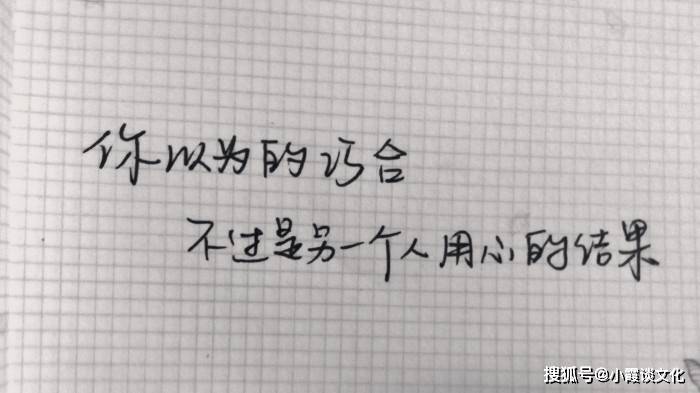 你以为的巧合
不过是另一个人用心的结果
搜狐号@小霞谈文化